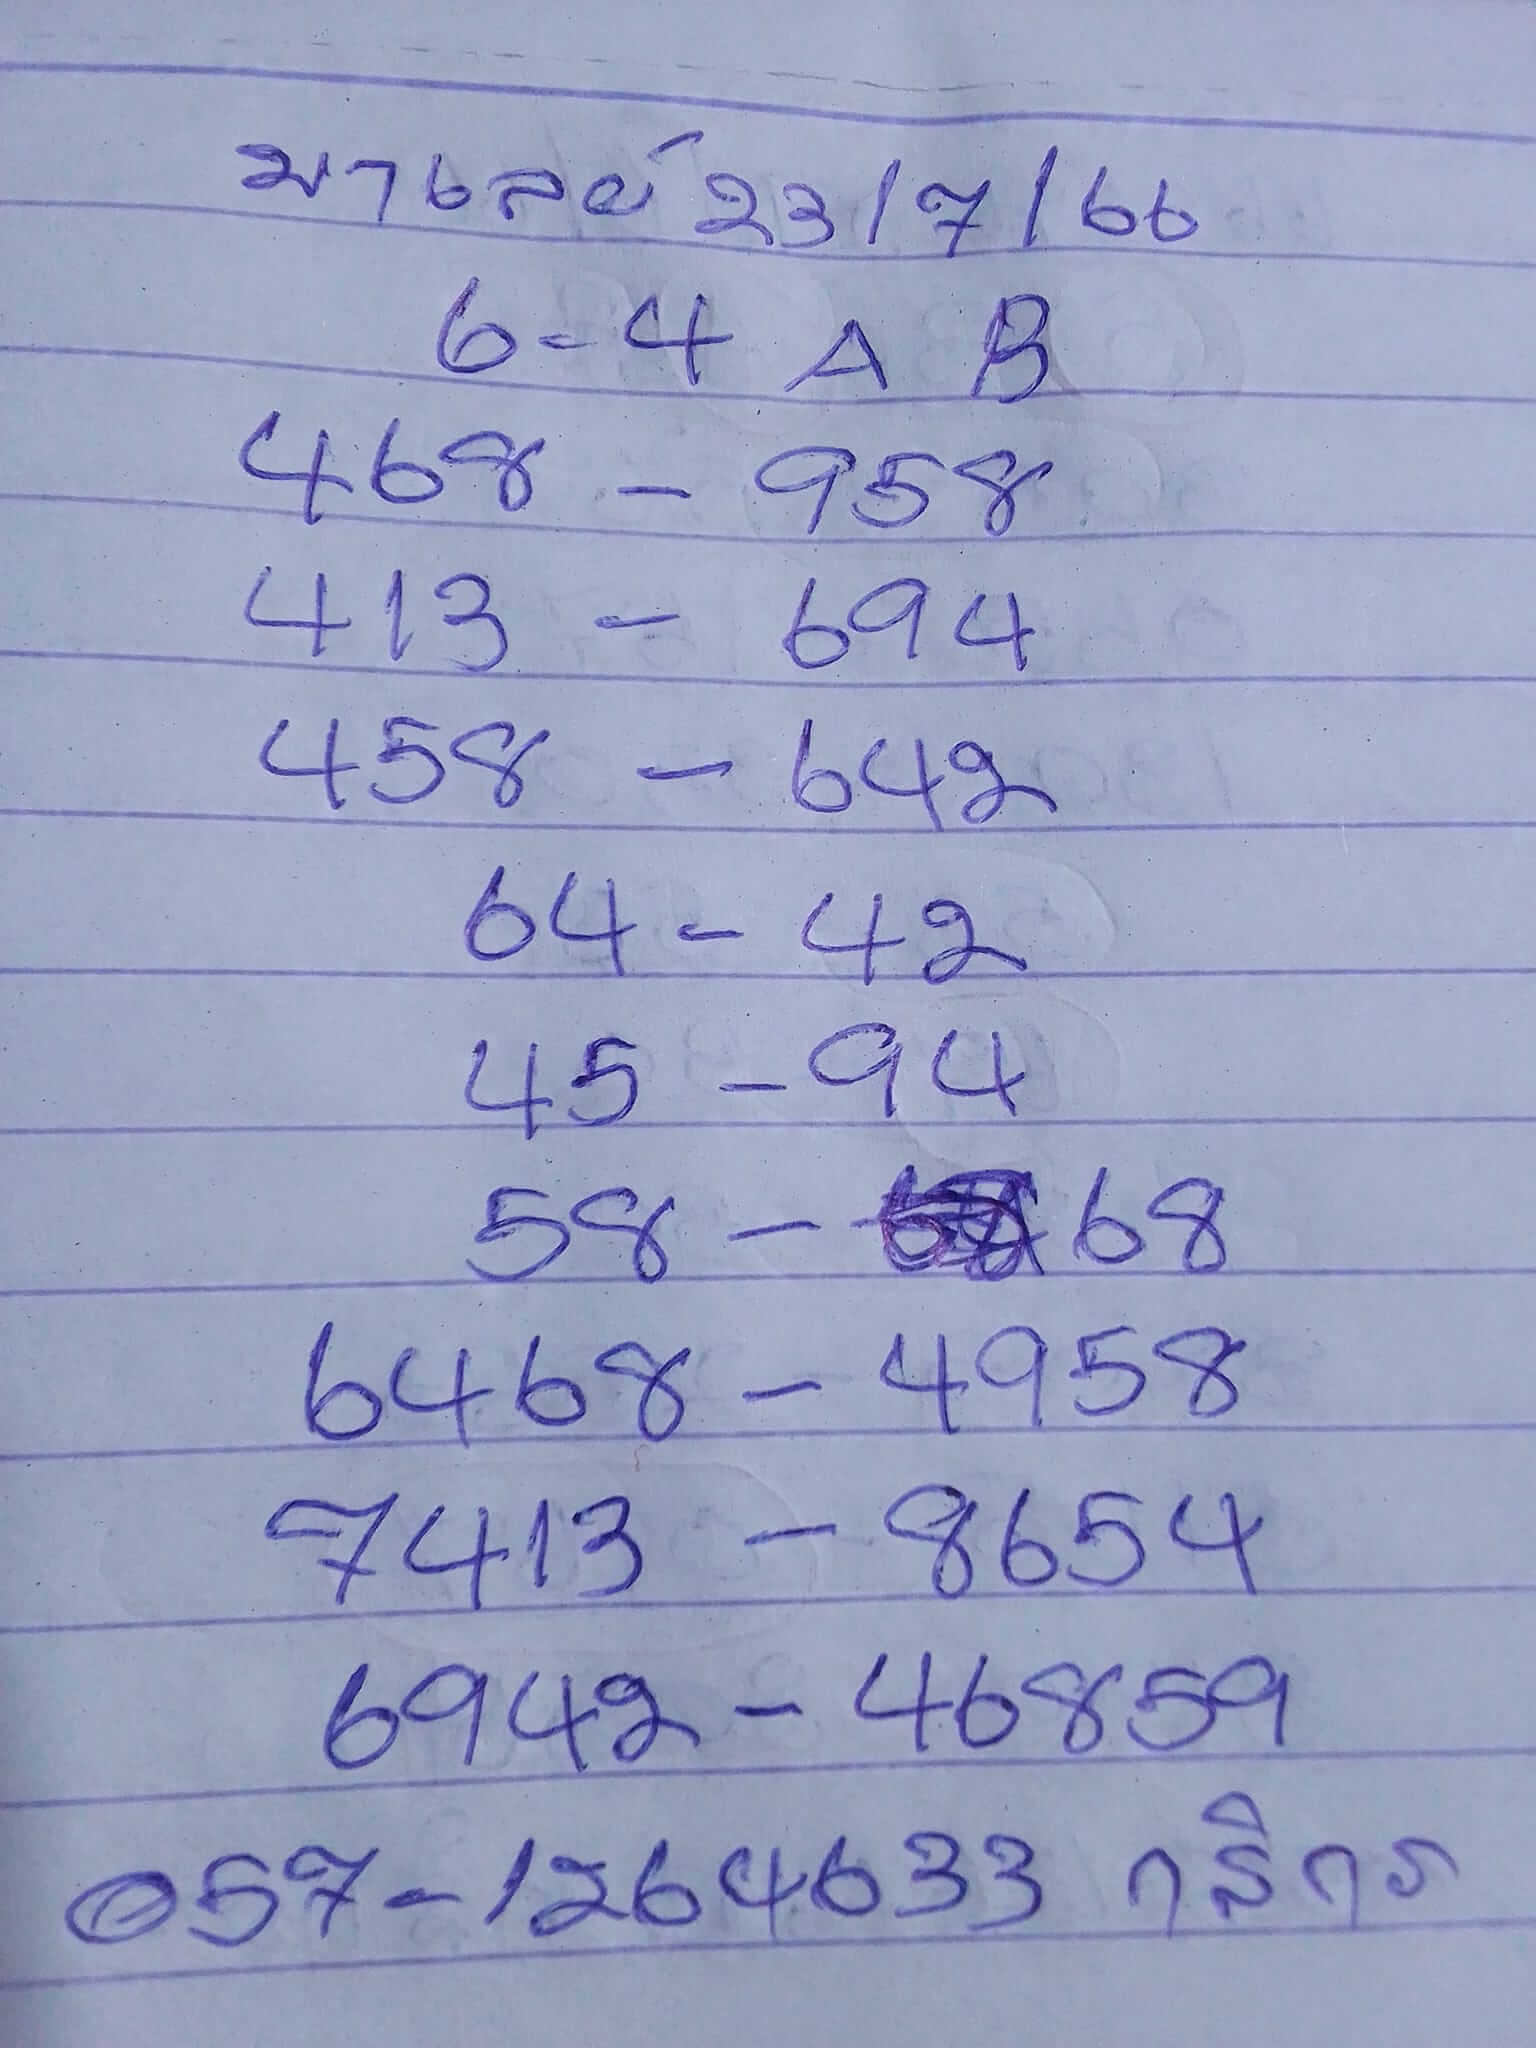 มาเลย์ 23/7/66
6-4 A B
468 - 958
413 - 694
458 - 642
64 - 42
45 - 94
58 - 68
6468 - 4958
7413 - 8654
6942 - 46859
057-1264633 กสิกร